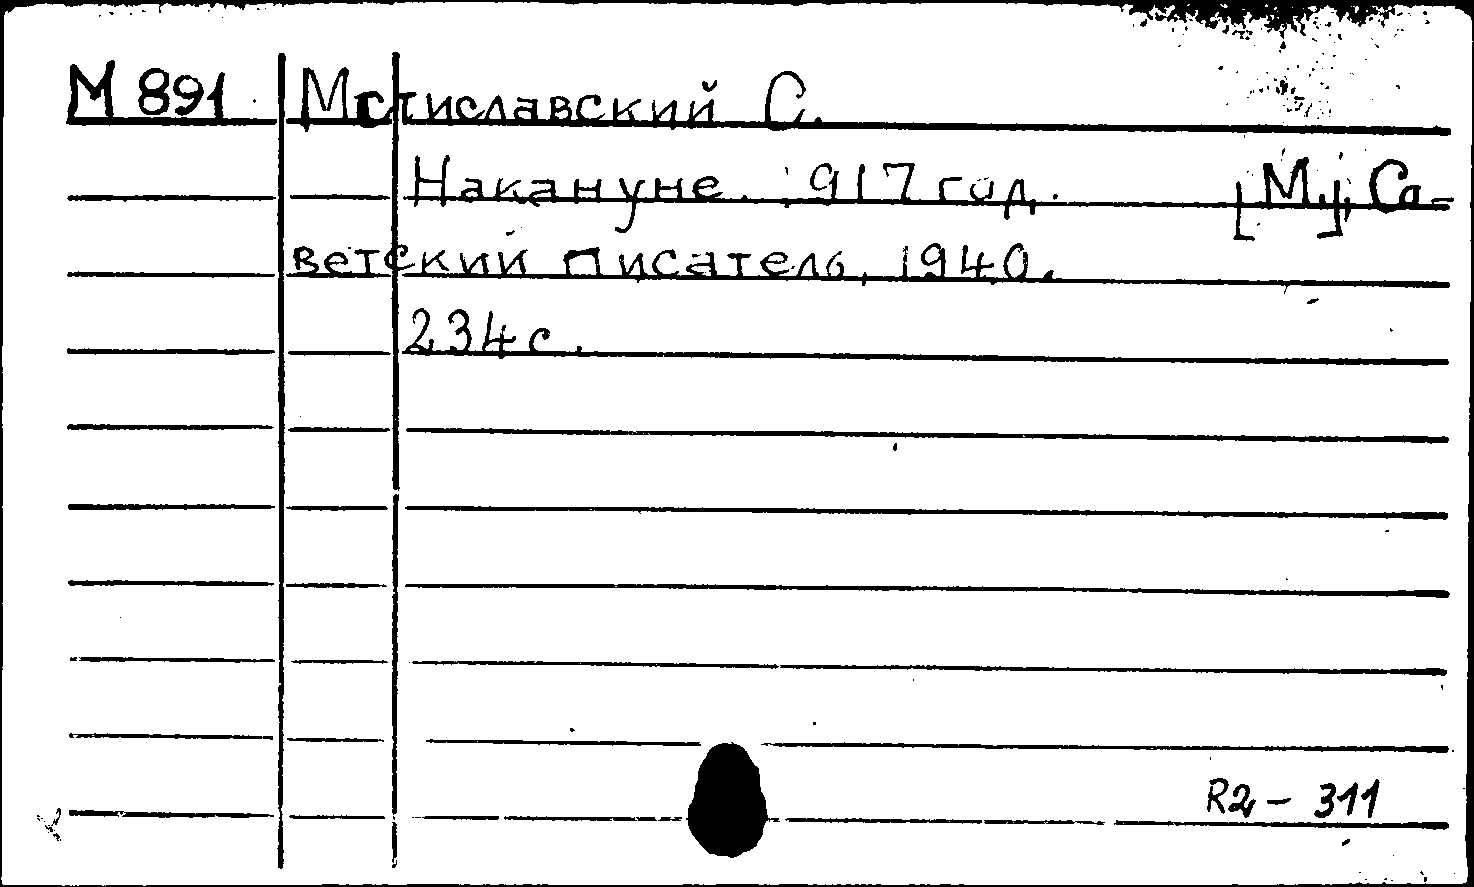 М 891 Мстиславский С.
Накануне. 1917 год. [М.], Со-
ветский писатель, 1940.
234 с.
R2 - 311